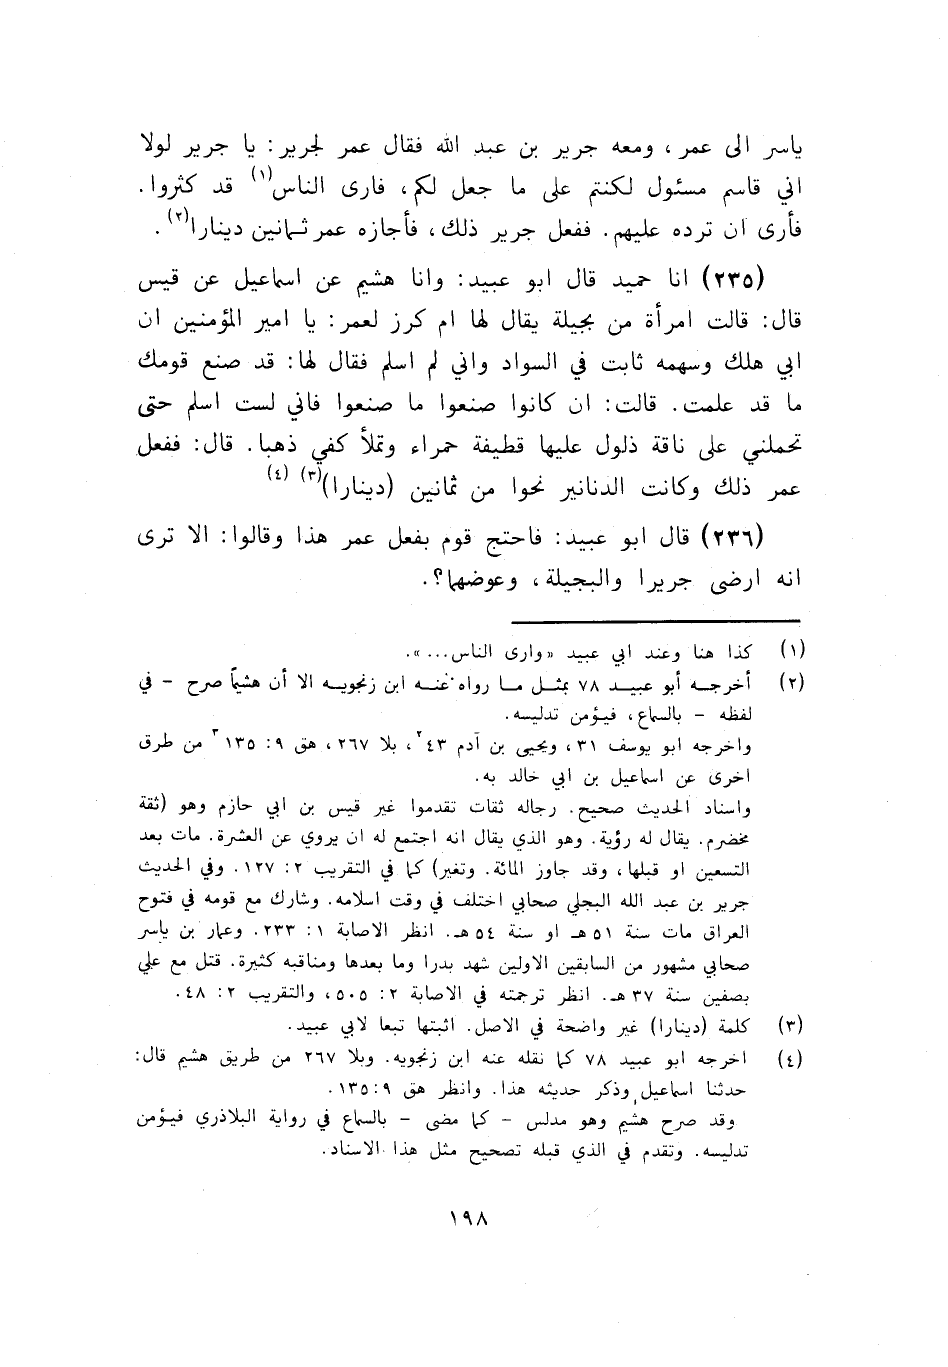 ياسر الى عمر، ومعه جرير بن عبد الله فقال عمر لجرير: يا جرير لولا
اني قاسم مسئول لكنتم على ما جعل لكم، فارى الناس(١) قد كثروا.
فأرى ان ترده عليهم. ففعل جرير ذلك، فأجازه عمر ثمانين دينارا(٢).
(٢٣٥) انا حميد قال ابو عبيد: وانا هشيم عن اسماعيل عن قيس
قال: قالت امرأة من بجيلة يقال لها ام كرز لعمر: يا امير المؤمنين ان
ابي هلك وسهمه ثابت في السواد واني لم اسلم فقال لها: قد صنع قومك
ما قد علمت. قالت: ان كانوا صنعوا ما صنعوا فاني لست اسلم حتى
تحملني على ناقة ذلول عليها قطيفة حمراء وتملأ كفي ذهبا. قال: ففعل
عمر ذلك وكانت الدنانير نحوا من ثمانين (دينارا)(٣) (٤)
(٢٣٦) قال ابو عبيد: فاحتج قوم بفعل عمر هذا وقالوا: الا ترى
انه ارضى جريرا والبجيلة، وعوضهما؟.
(١) كذا هنا وعند ابي عبيد «وارى الناس...».
(٢) أخرجه أبو عبيد ٧٨ بمثل ما رواه عنه ابن زنجويه الا أن هشيماً صرح – في
لفظه – بالسماع، فيؤمن تدليسه.
واخرجه ابو يوسف ٣١، ويحيى بن آدم ٤٣، بلا ٢٦٧، هق ٩: ١٣٥ من طرق
اخرى عن اسماعيل بن ابي خالد به.
واسناد الحديث صحيح. رجاله ثقات تقدموا غير قيس بن ابي حازم وهو (ثقة
مخضرم. يقال له رؤية. وهو الذي يقال انه اجتمع له ان يروي عن العشرة. مات بعد
التسعين او قبلها، وقد جاوز المائة. وتغير) كما في التقريب ٢: ١٢٧. وفي الحديث
جرير بن عبد الله البجلي صحابي اختلف في وقت اسلامه. وشارك مع قومه في فتوح
العراق مات سنة ٥١ هـ او سنة ٥٤ هـ. انظر الاصابة ١: ٢٣٣. وعمار بن ياسر
صحابي مشهور من السابقين الاولين شهد بدرا وما بعدها ومناقبه كثيرة. قتل مع علي
بصفين سنة ٣٧ هـ. انظر ترجمته في الاصابة ٢: ٥٠٥، والتقريب ٢: ٤٨.
(٣) كلمة (دينارا) غير واضحة في الاصل. اثبتها تبعا لابي عبيد.
(٤) اخرجه ابو عبيد ٧٨ كما نقله عنه ابن زنجويه. وبلا ٢٦٧ من طريق هشيم قال:
حدثنا اسماعيل وذكر حديثه هذا. وانظر هق ٩: ١٣٥.
وقد صرح هشيم وهو مدلس – كما مضى – بالسماع في رواية البلاذري فيؤمن
تدليسه. وتقدم في الذي قبله تصحيح مثل هذا الاسناد.
١٩٨